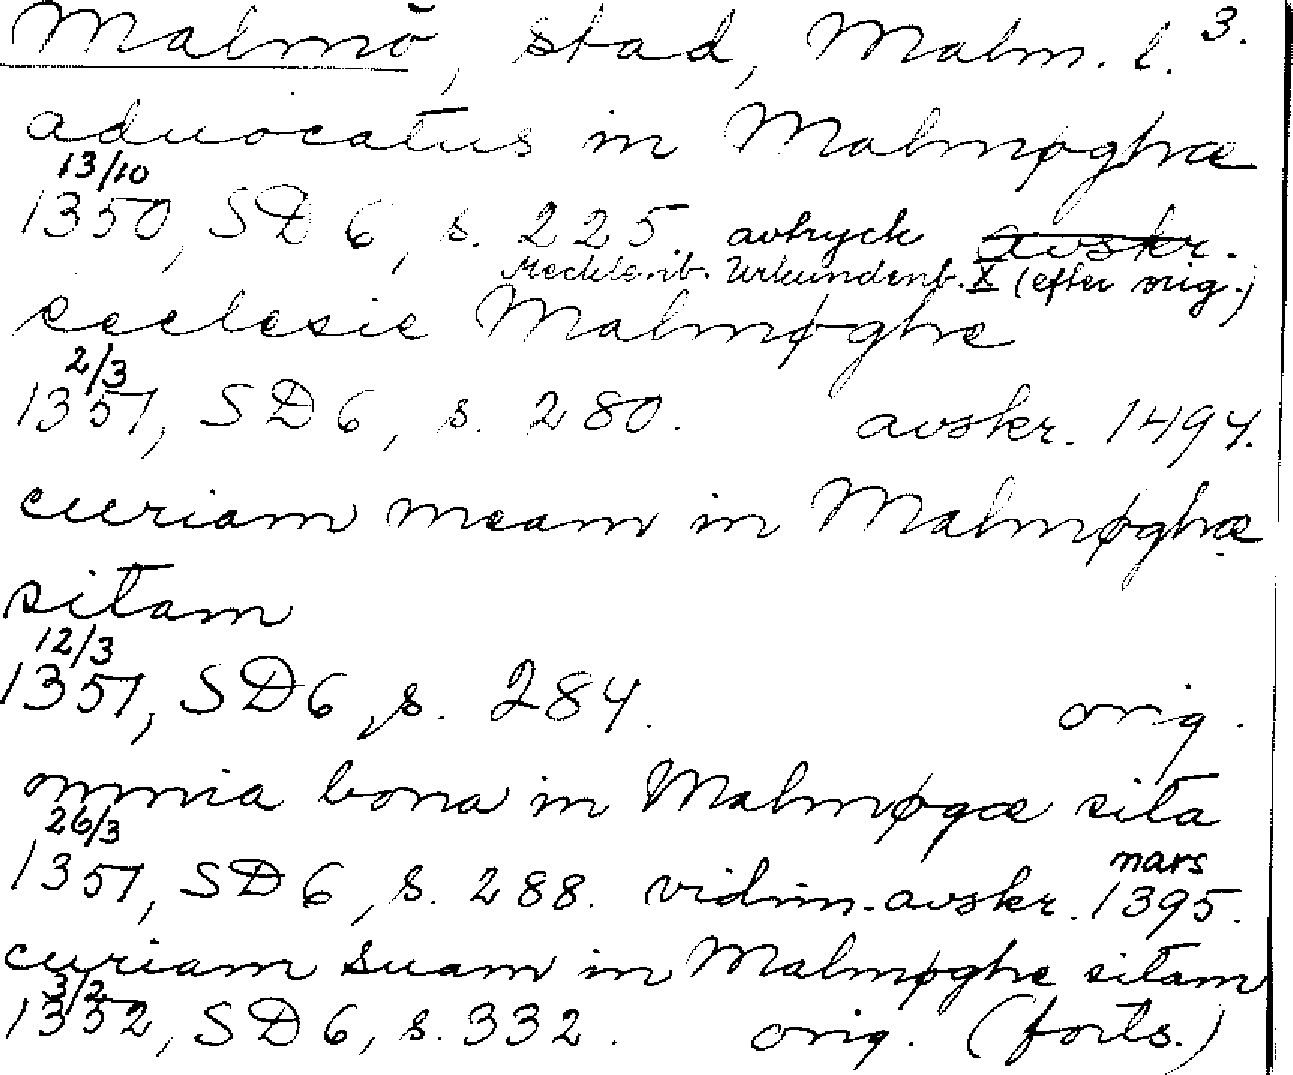 Malmö, stad, Malm. l. 3.
aduocatus in Malmøghæ
13/10
1350, SD 6, s. 225. avtryck avskr.
Mecklenb. Urkundenb. X (efter orig.)
ecclesie Malmøghe
2/3
1351, SD 6, s. 280. avskr. 1494.
curiam meam in Malmøghæ
sitam
12/3
1351, SD 6, s. 284. orig.
omnia bona in Malmøgæ sita
26/3
1351, SD 6, s. 288. vidim. avskr. mars 1395.
curiam suam in Malmøghe sitam
3/2
1352, SD 6, s. 332. orig. (forts.)